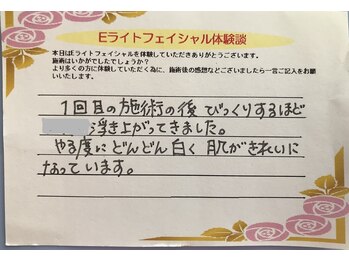 Eライトフェイシャル体験談
本日はEライトフェイシャルを体験していただきありがとうございます。
施術はいかがでしたでしょうか？
より多くの方に体験していただく為に、施術後の感想などございましたら一言ご記入をお願
いいたします。
1回目の施術の後 びっくりするほど
浮き上がってきました。
やる度に どんどん白く 肌がきれいに
なっています。